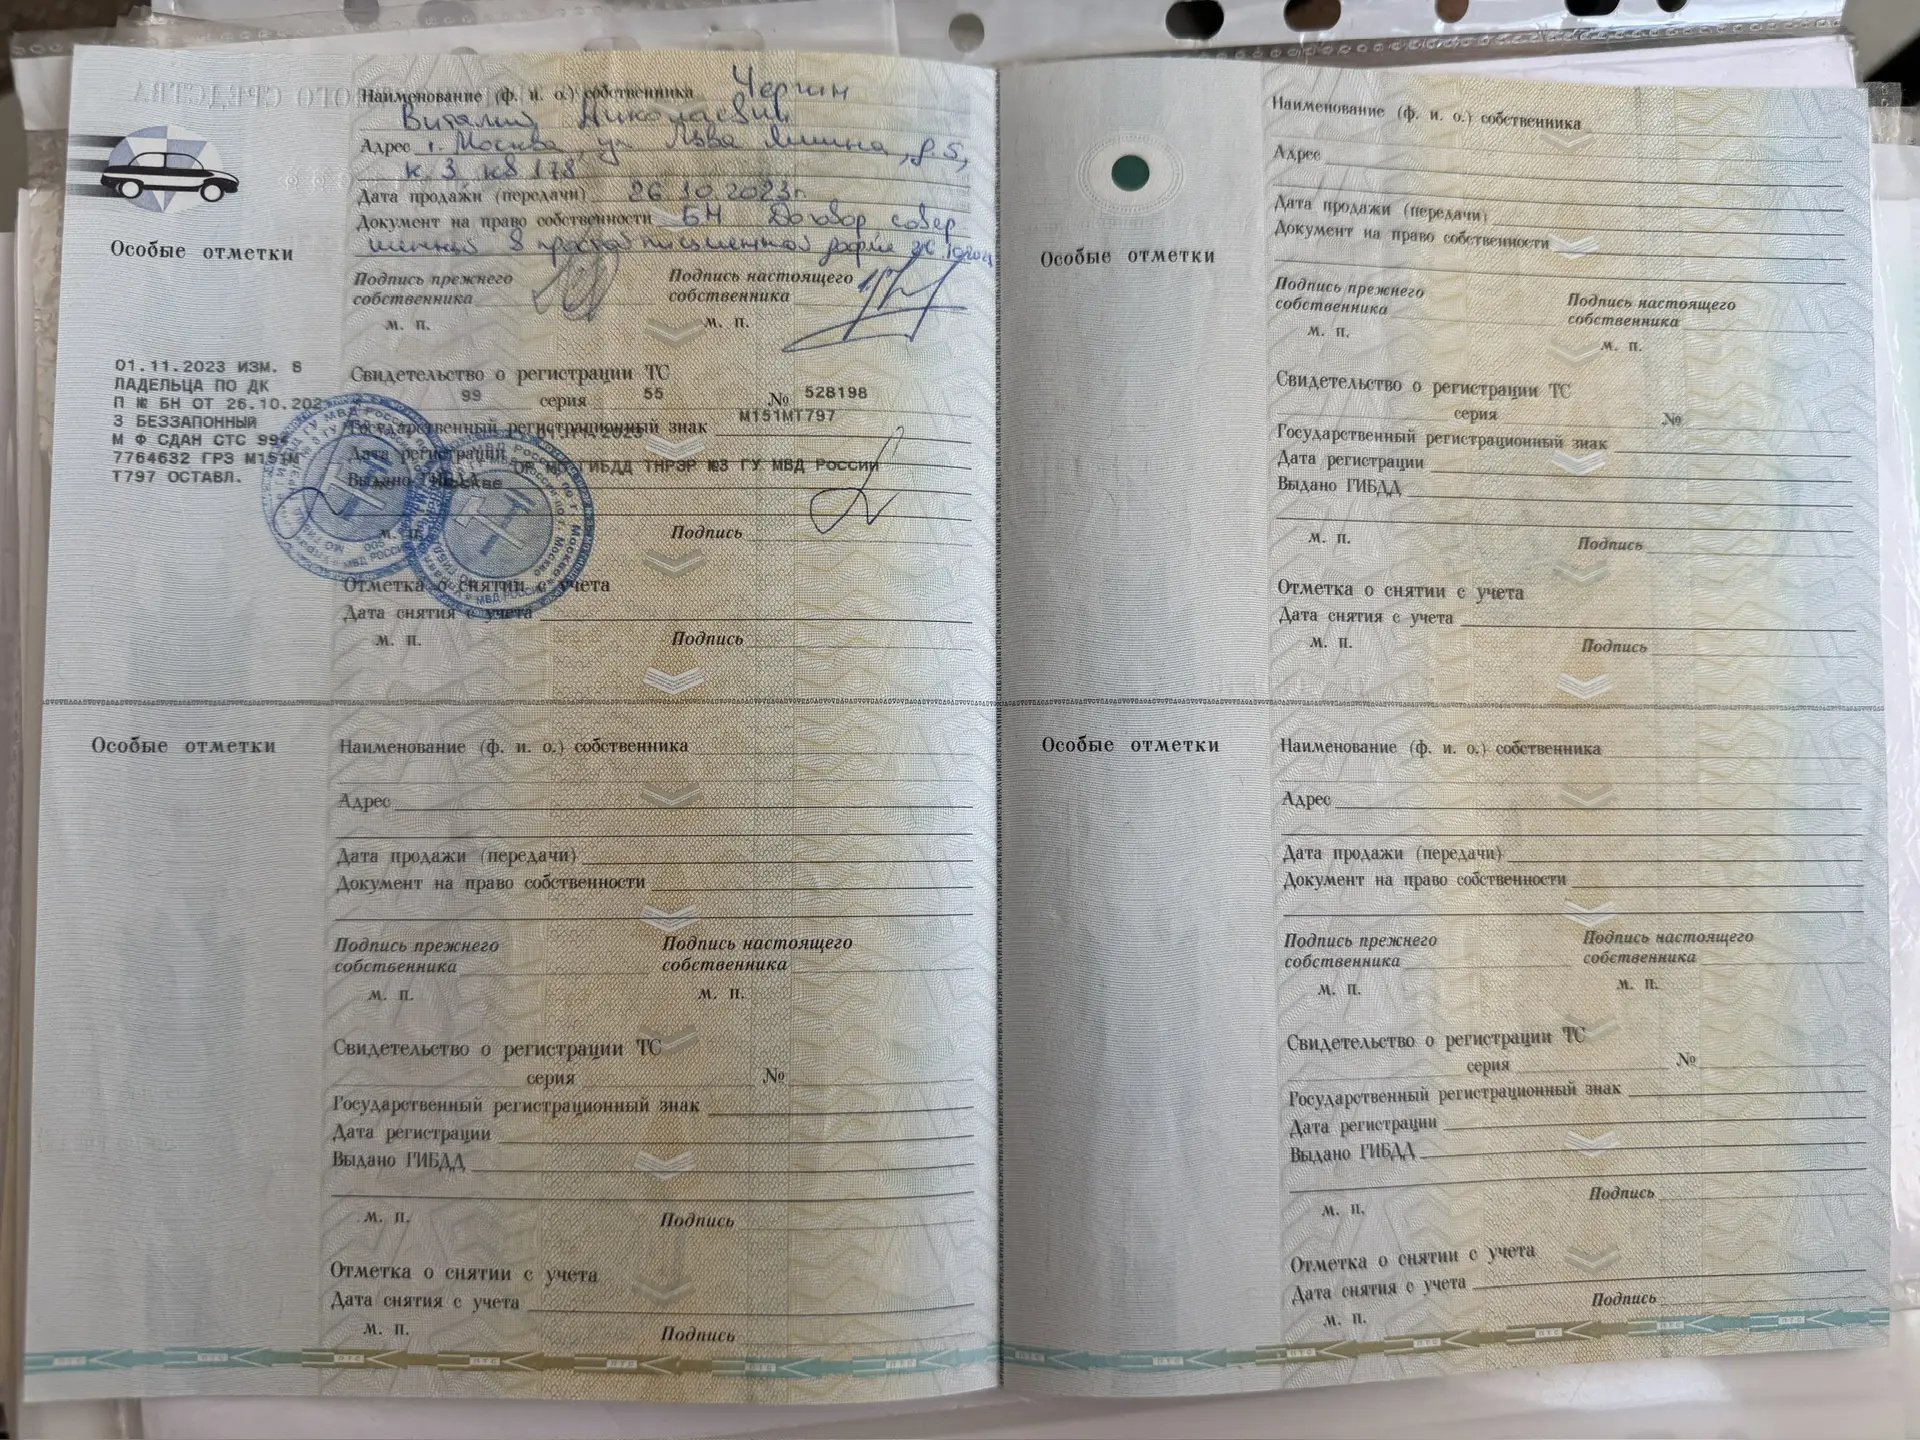 Наименование (ф. и. о.) собственника
Виталий Николаевич
Адрес г. Москва, ул Льва Яшина, д. 5,
к. 3 кв 178
Дата продажи (передачи) 26.10.2023г.
Документ на право собственности БН Договор совер
шенный в простой письменной форме
Подпись прежнего собственника
Подпись настоящего собственника
м. п.
м. п.
Особые отметки
01.11.2023 ИЗМ. В
ЛАДЕЛЬЦА ПО ДК
П № БН ОТ 26.10.202
3 БЕЗЗАПОННЫЙ
М Ф СДАН СТС 99
7764632 ГРЗ М151М
Т797 ОСТАВЛ.
Свидетельство о регистрации ТС
99 серия 55 № 528198
Государственный регистрационный знак М151МТ797
Дата регистрации 01.11.2023
Выдано ГИБДД
ГИБДД ТНРЭР №3 ГУ МВД РОССИИ
м. п.
Подпись
Отметка о снятии с учета
Дата снятия с учета
м. п.
Подпись
Особые отметки
Наименование (ф. и. о.) собственника
Адрес
Дата продажи (передачи)
Документ на право собственности
Подпись прежнего собственника
Подпись настоящего собственника
м. п.
м. п.
Свидетельство о регистрации ТС
серия №
Государственный регистрационный знак
Дата регистрации
Выдано ГИБДД
м. п.
Подпись
Отметка о снятии с учета
Дата снятия с учета
м. п.
Подпись
Особые отметки
Наименование (ф. и. о.) собственника
Адрес
Дата продажи (передачи)
Документ на право собственности
Подпись прежнего собственника
Подпись настоящего собственника
м. п.
м. п.
Свидетельство о регистрации ТС
серия №
Государственный регистрационный знак
Дата регистрации
Выдано ГИБДД
м. п.
Подпись
Отметка о снятии с учета
Дата снятия с учета
м. п.
Подпись
Особые отметки
Наименование (ф. и. о.) собственника
Адрес
Дата продажи (передачи)
Документ на право собственности
Подпись прежнего собственника
Подпись настоящего собственника
м. п.
м. п.
Свидетельство о регистрации ТС
серия №
Государственный регистрационный знак
Дата регистрации
Выдано ГИБДД
м. п.
Подпись
Отметка о снятии с учета
Дата снятия с учета
м. п.
Подпись